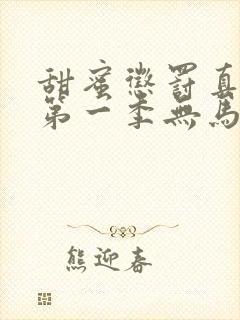 甜蜜懲罰真
第一季無馬
熊迎春